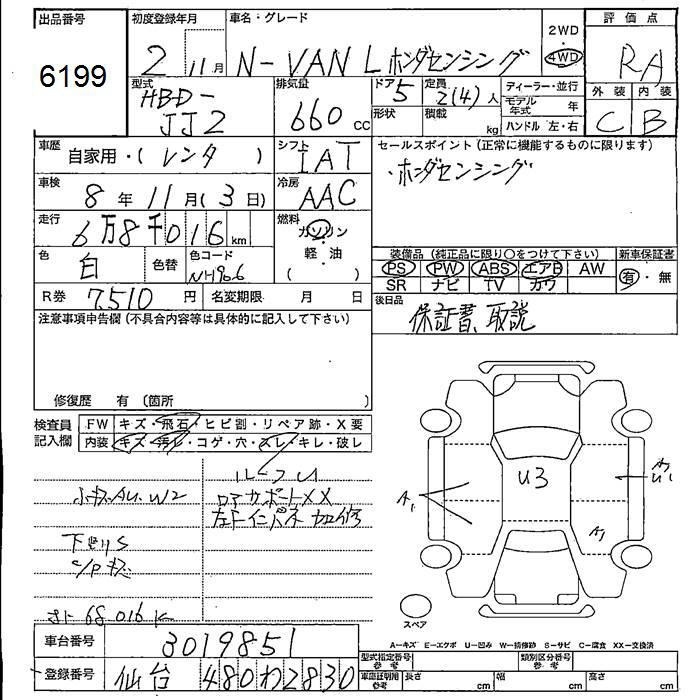 出品番号 初度登録年月 車名・グレード 評価点
6199 2 11月 N-VAN L ホンダセンシング 2WD 4WD RA
型式 排気量 ドア 5 定員 2(4)人 ディーラー・並行 外装 内装
HBD-JJ2 660cc 形状 積載 kg モデル年式 年 C B
ハンドル 左・右
車歴 シフト セールスポイント (正常に機能するものに限ります)
自家用・(レンタ) IAT ・ホンダセンシング
車検 8年11月(3日) 冷房 AAC
走行 6万8千016km 燃料 ガソリン
軽・油
( )
色 白 色替 色コード NH906
装備品 (純正品に限り〇をつけて下さい) 新車保証書
PS PW ABS エアB AW 有・無
SR ナビ TV カワ
R券 7510円 名変期限 月 日
後日品
保証書、取説
注意事項申告欄 (不具合内容等は具体的に記入して下さい)
修復歴 有 (箇所 )
検査員記入欄 FW キズ・飛石・ヒビ割・リペア跡・X要
内装 キズ・汚レ・コゲ・穴・スレ・キレ・破レ
ルーフU
AU.W2 コアサポートXX
左F インパネ 加修
下廻りS
68016K
U3
A1
スペア
A−キズ E−エクボ U−凹み W−補修跡 S−サビ C−腐食 XX−交換済
車台番号 3019851
登録番号 仙台 480 わ 2830
型式指定番号 参考 類別区分番号 参考
車庫証明用 参考 長さ cm 幅 cm 高さ cm